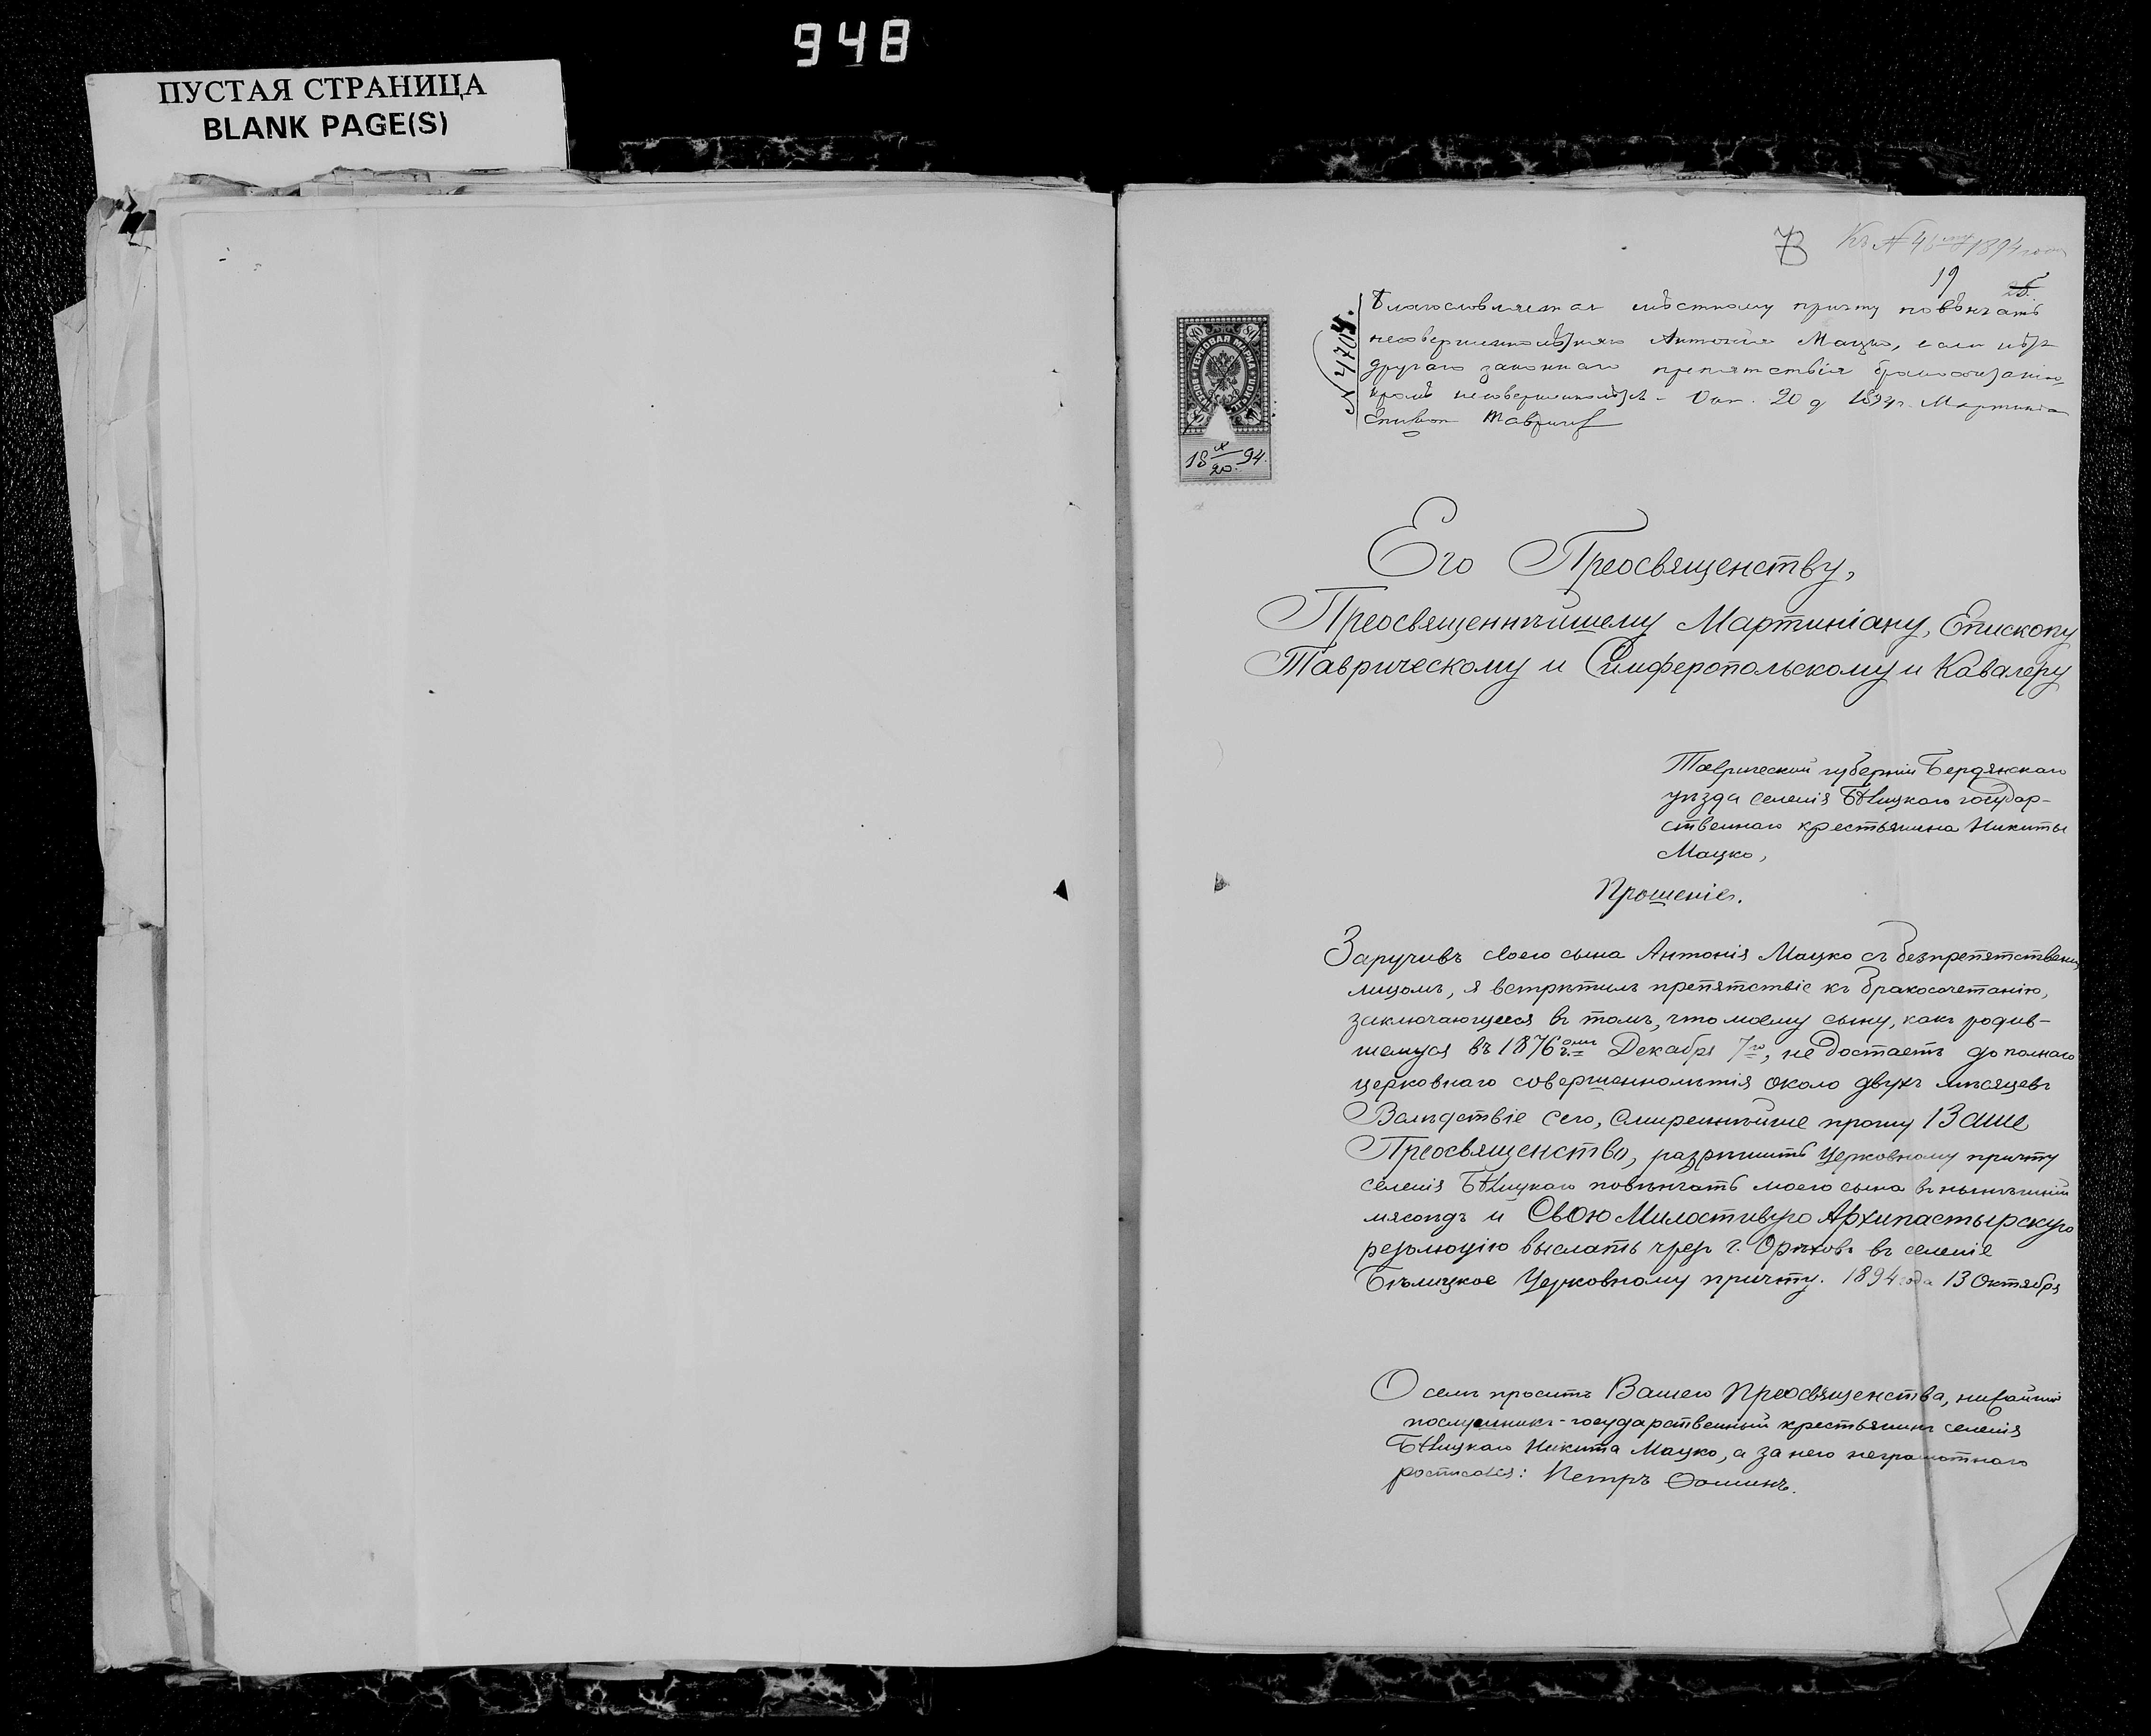 948
ПУСТАЯ СТРАНИЦА
BLANK PAGE(S)
73
Къ № 1894 года
19
№ 4704.
Благословляется мѣстному причту повѣнчать
несовершеннолѣтняго Антонія Мацко, если нѣтъ
другаго законнаго препятствія бракосочетанію,
кромѣ несовершеннолѣтія - Окт. 20 д 1894 г. Мартиніанъ
Епископ Таврич
ГЕРБОВАЯ МАРКА
80 80
18 X/20. 94.
Его Преосвященству,
Преосвященнѣйшему Мартиніану, Епископу
Таврическому и Симферопольскому и Кавалеру
Таврической губерніи Бердянскаго
уѣзда селенія Бѣлицкаго государ-
ственнаго крестьянина Никиты
Мацко,
Прошеніе.
Заручивъ своего сына Антонія Мацко съ безпрепятственн
лицомъ, я встрѣтилъ препятствіе къ бракосочетанію,
заключающееся въ томъ, что моему сыну, какъ родив-
шемуся въ 1876 Декабря 7го, не достаетъ до полнаго
церковнаго совершеннолѣтія около двухъ мѣсяцевъ
Вслѣдствіе сего, смиреннѣйше прошу Ваше
Преосвященство, разрѣшить Церковному причту
селенія Бѣлицкаго повѣнчать моего сына въ нынѣшній
мясоѣдъ и Свою Милостивую Архипастырскую
резолюцію выслать чрезъ г. Орѣховъ въ селеніе
Бѣлицкое Церковному причту. 1894 года 13 Октября
О семъ проситъ Вашего Преосвященства, нижайшій
послушникъ-государственный крестьянинъ селенія
Бѣлицкаго Никита Мацко, а за него неграмотнаго
росписался: Петръ Ѳоминъ.